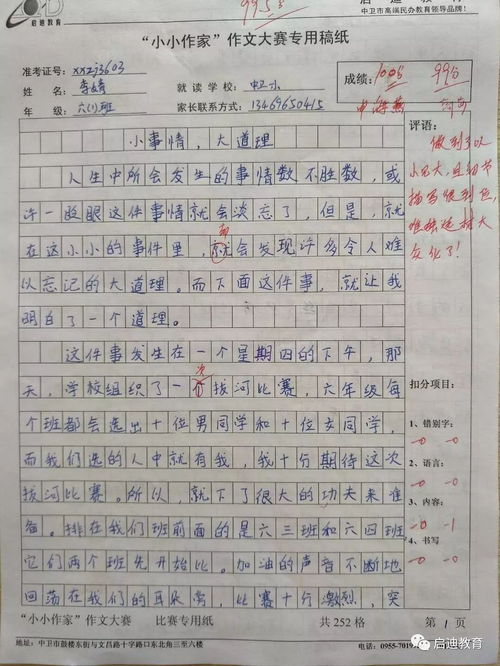 启迪教育
99.5分
启迪教育
中卫市高端民办教育领导品牌!
“小小作家”作文大赛专用稿纸
准考证号: xxzj3603
姓 名: 李婧
就 读 学 校: 中卫小
年 级: 六(1)班
家长联系方式: 13469650415
成绩: 100分 99分
小事情,大道理
人生中所会发生的事情数不胜数,或
许一眨眼这件事情就会淡忘了,但是,就
在这小小的事件里,就会发现许多令人难
以忘记的大道理。而下面这件事,就让我
明白了一个道理。
这件事发生在一个星期四的下午,那
天,学校组织了一个次拔河比赛,六年级每
个班都会选出十位男同学和十位女同学,
而我们选的人中就有我,我十分期待这次
拔河比赛。所以,就下了很大的功夫来准
备。排在我们班前面的是六三班和六四班
它们两个班先开始比。加油的声音不断地
回荡在我们的耳朵旁,比赛十分激烈,突
评语:
做到了以
小见大,且细节
描写很到位,
文化了!
扣分项目:
1、错别字:
-0 -0
2、语言:
-0 -0
3、内容:
-0 -1
4、书写
-0 -0
“小小作家”作文大赛 比赛专用纸 共 252 格 第 1 页
地址: 中卫市鼓楼东街与文昌路十字路口东北角三至六楼 电话: 0955-7019
启迪教育